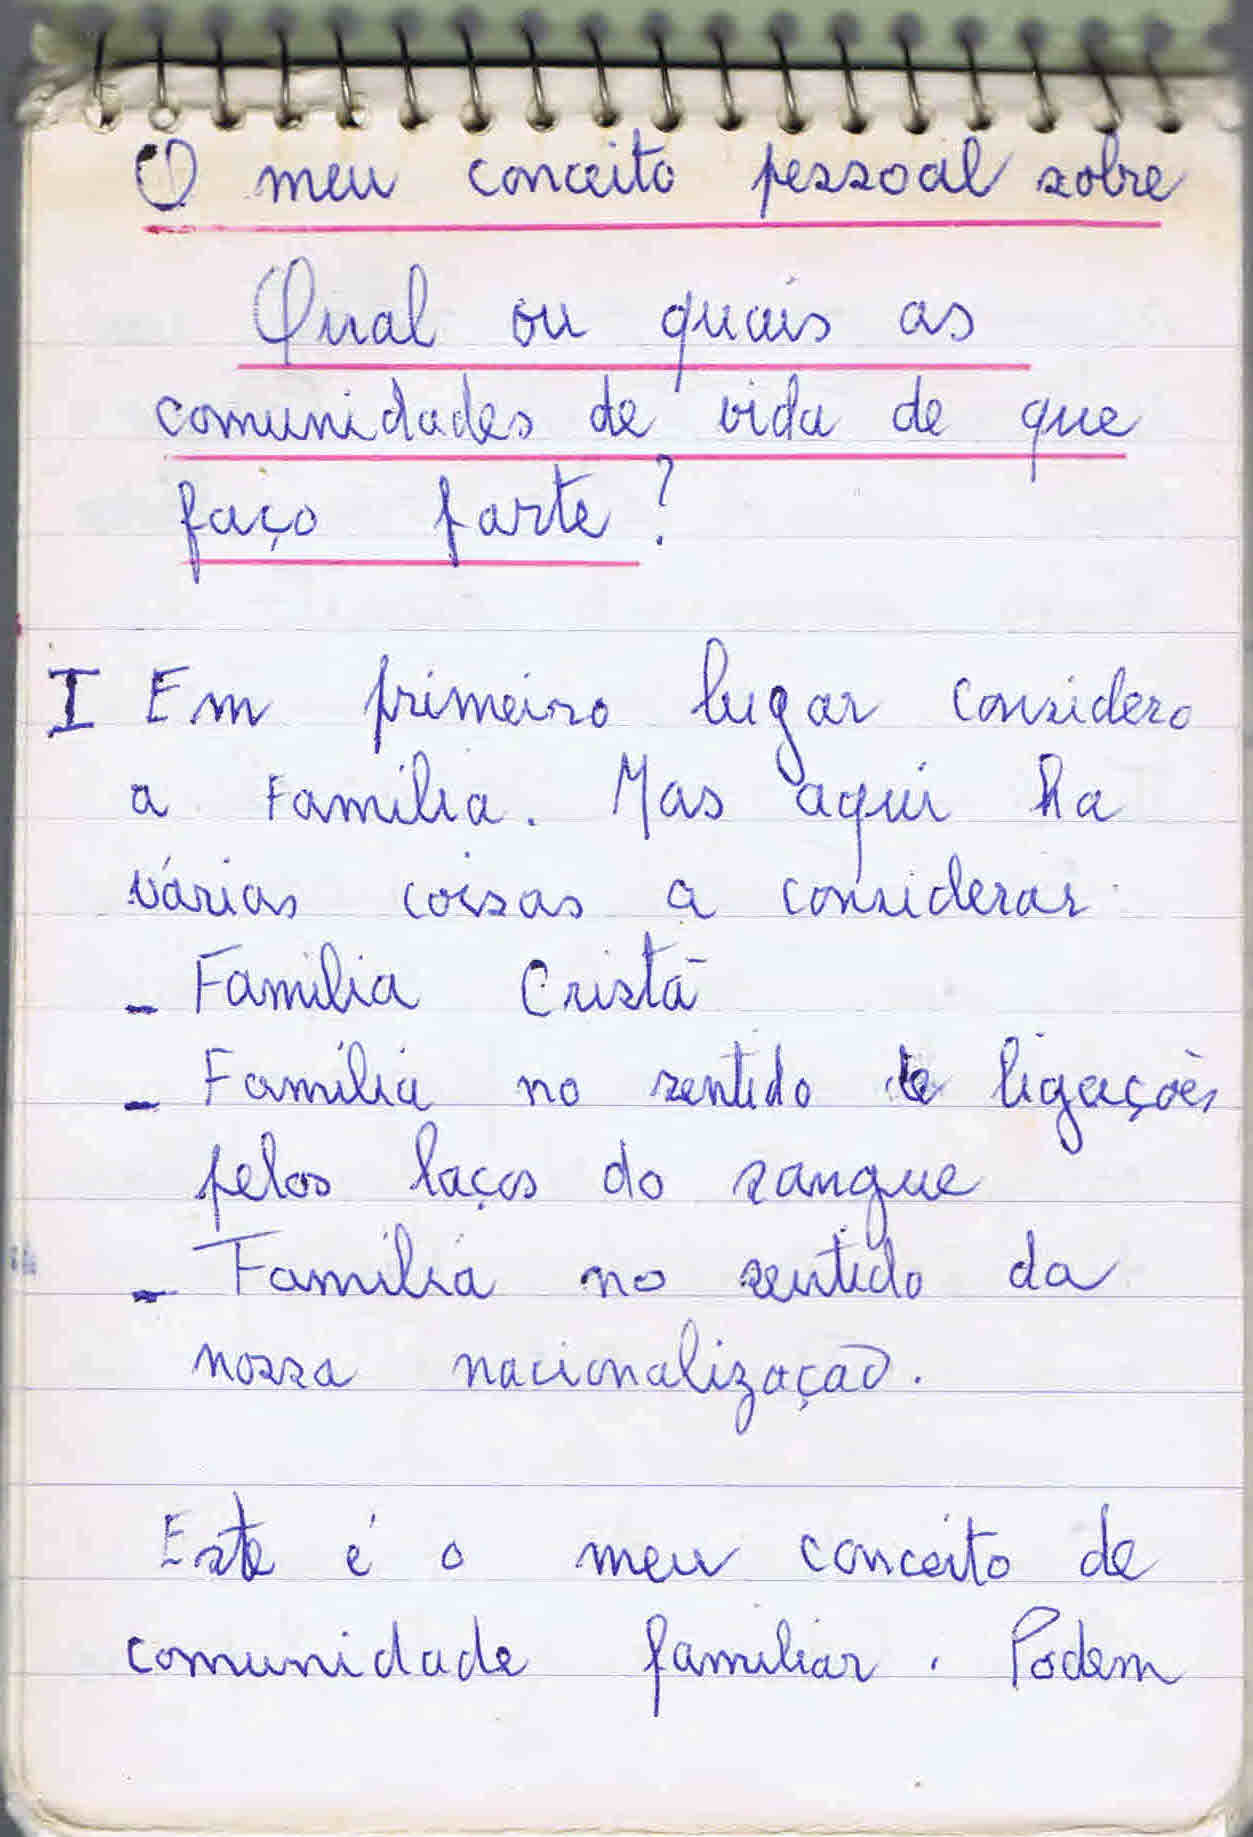 O meu conceito pessoal sobre
Qual ou quais as
comunidades de vida de que
faço parte?
I Em primeiro lugar considero
a Família. Mas aqui ha
várias coisas a considerar
- Familia Cristã
- Família no sentido de ligações
pelos laços do sangue
- Família no sentido da
nossa nacionalização.
Este é o meu conceito de
comunidade familiar. Podem